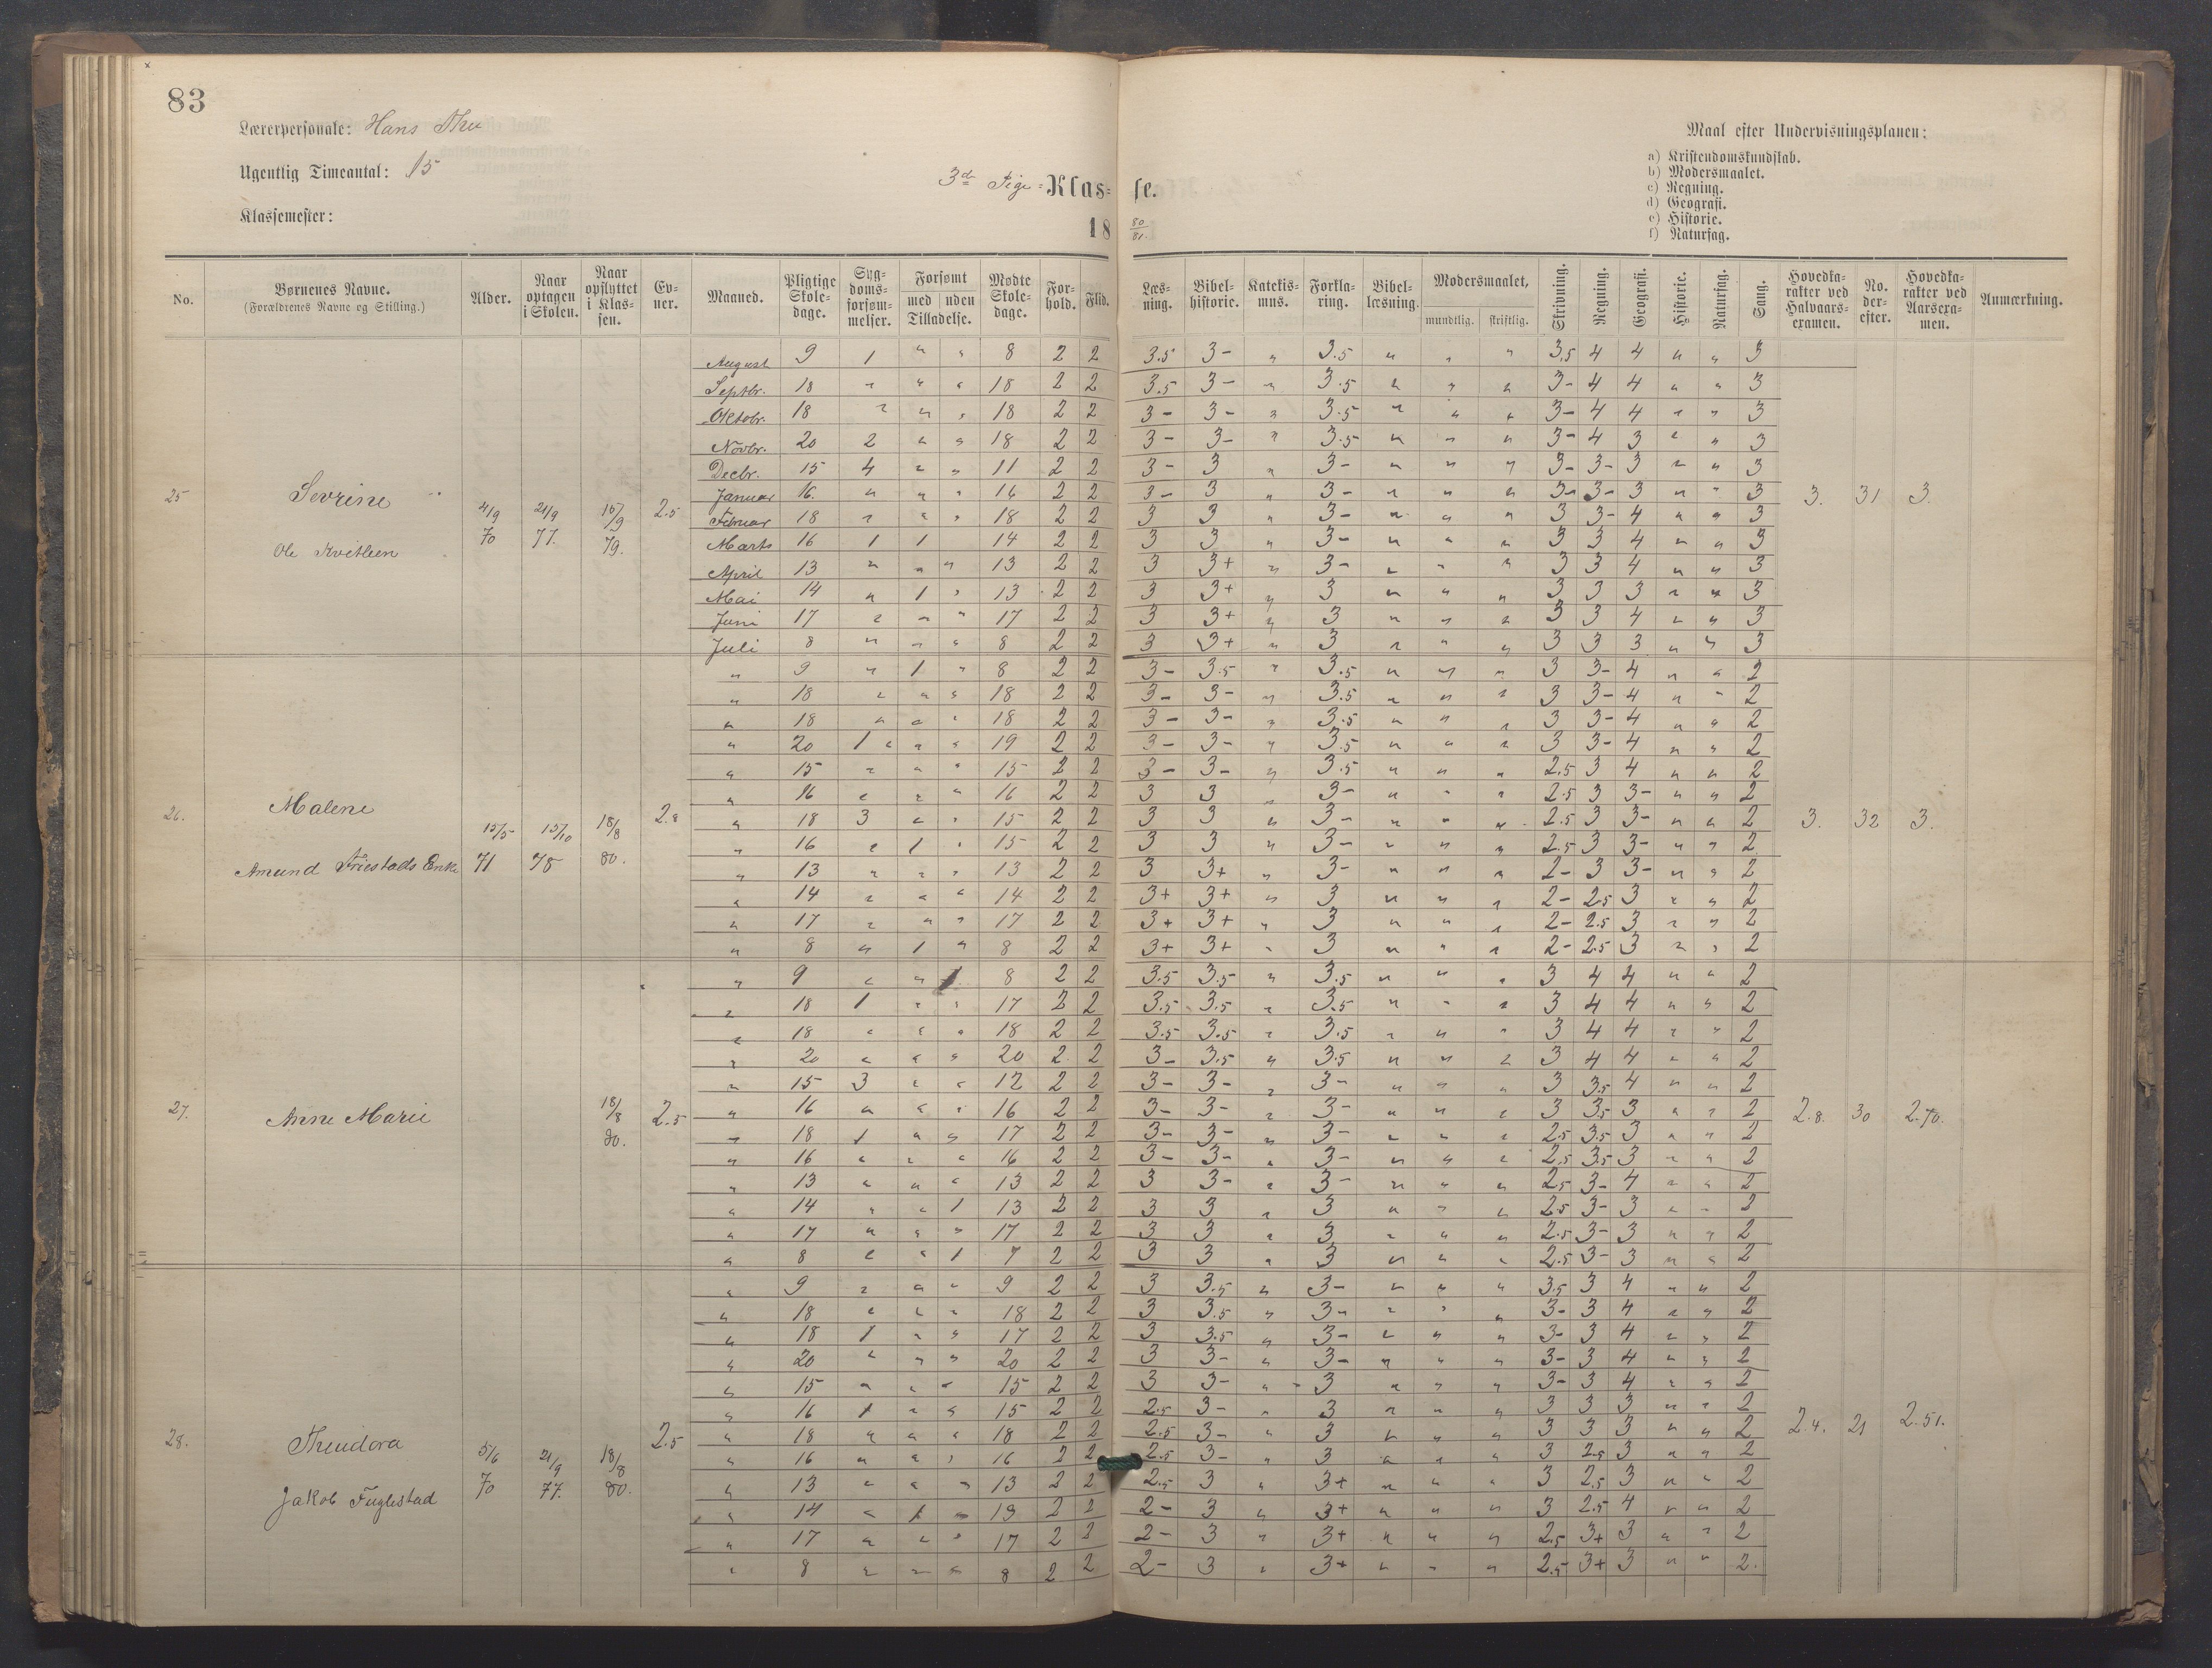 83
Lærerpersonale: Hans Thu
Ugentlig Timeantal: 15
Klassemester:
3die Pige=Klas=se.
18 80/81.
Maal efter Undervisningsplanen:
a) Kristendomskundskab.
b) Modersmaalet.
c) Regning.
d) Geografi.
e) Historie.
f) Naturfag.
No. Børnenes Navne. (Forældrenes Navne og Stilling.) Alder. Naar optagen i Skolen. Naar opflyttet i Klassen. Evner. Maaned. Pligtige Skoledage. Sygdomsforsømmelser. Forsømt med uden Tilladelse. Mødte Skoledage. Forhold. Flid. Læsning. Bibelhistorie. Katekismus. Forklaring. Bibellæsning. Modersmaalet, mundtlig. skriftlig. Skrivning. Regning. Geografi. Historie. Naturfag. Sang. Hovedkarakter ved Halvaarsexamen. No. derefter. Hovedkarakter ved Aarsexamen. Anmærkning.
25 Sevrine 4/9 70 21/9 77. 15/9 79. 2.5 3. 31 3.
August 9 1 " " 8 2 2 3.5 3- " 3.5 " " " 3,5 4 4 " " 3
Septbr. 18 " " " 18 2 2 3.5 3- " 3.5 " " " 3- 4 4 " " 3
Oktobr. 18 " " " 18 2 2 3- 3- " 3.5 " " " 3- 4 4 " " 3
Novbr. 20 2 " " 18 2 2 3- 3- " 3.5 " " " 3- 4 3 " " 3
Decbr. 15 4 " " 11 2 2 3- 3 " 3- " " " 3- 3- 3 " " 3
Januar 16. " " " 16 2 2 3- 3 " 3- " " " 3- 3- 3 " " 3
Februar 18 " " " 18 2 2 3 3 " 3- " " " 3 3- 4 " " 3
Marts 16 1 1 14 2 2 3 3 " 3- " " " 3 3 4 " " 3
April 13 " " " 13 2 2 3 3+ " 3- " " " 3 3 4 " " 3
Mai 14 " 1 " 13 2 2 3 3+ " 3 " " " 3 3 3 " " 3
Juni 17 " " " 17 2 2 3 3+ " 3 " " " 3 3 4 " " 3
Juli 8 " " " 8 2 2 3 3+ " 3 " " " 3 3 3 " " 3
26. Malene
Amund Friestads Enke 15/5 71 15/10 78 18/8 80. 2.8 3. 32 3.
" 9 " 1 " 8 2 2 3- 3.5 " 3.5 " " " 3 3- 4 " " 2
" 18 " " " 18 2 2 3- 3- " 3.5 " " " 3 3- 4 " " 2
" 18 " " " 18 2 2 3- 3- " 3.5 " " " 3 3- 4 " " 2
" 20 1 " " 19 2 2 3- 3- " 3.5 " " " 3 3- 4 " " 2
" 15 " " " 15 2 2 3- 3- " 3.5 " " " 2.5 3 4 " " 2
" 16 " " " 16 2 2 3 3 " 3- " " " 2.5 3 3- " " 2
" 18 3 " " 15 2 2 3 3 " 3- " " " 2.5 3 3- " " 2
" 16 " 1 " 15 2 2 3 3 " 3- " " " 2.5 3 3- " " 2
" 13 " " " 13 2 2 3 3+ " 3- " " " 2- 3 3- " " 2
" 14 " " " 14 2 2 3+ 3+ " 3 " " " 2- 2.5 3 " " 2
" 17 " " " 17 2 2 3+ 3+ " 3 " " " 2- 2.5 3 " " 2
" 8 " 1 " 8 2 2 3+ 3+ " 3 " " " 2- 2.5 3 " " 2
27. Anne Marie 18/8 80. 2.5 2.8. 30 2.70.
" 9 " " 1 8 2 2 3.5 3.5 " 3.5 " " " 3 4 4 " " 2
" 18 1 " " 17 2 2 3.5 3.5 " 3.5 " " " 3 4 4 " " 2
" 18 " " " 18 2 2 3.5 3.5 " 3.5 " " " 3 4 4 " " 2
" 20 " " " 20 2 2 3- 3.5 " 3.5 " " " 3 4 4 " " 2
" 15 3 " " 12 2 2 3- 3- " 3- " " " 3 3.5 4 " " 2
" 16 " " " 16 2 2 3- 3- " 3- " " " 3 3.5 3 " " 2
" 18 1 " " 17 2 2 3- 3- " 3- " " " 2.5 3.5 3 " " 2
" 16 " " " 16 2 2 3- 3- " 3- " " " 2.5 3.5 3 " " 2
" 13 " " " 13 2 2 3 3- " 3- " " " 2.5 3- 4 " " 2
" 14 " " 1 13 2 2 3 3 " 3 " " " 2.5 3- 3 " " 2
" 17 " " " 17 2 2 3 3 " 3 " " " 2.5 3- 3 " " 2
" 8 " " 1 7 2 2 3 3 " 3 " " " 2.5 3- 3 " " 2
28. Theodora
Jakob Fuglestad 5/6 70 21/9 77. 18/8 80. 2.5 2.4. 21 2.51.
" 9 " " " 9 2 2 3 3.5 " 3- " " " 3.5 3 4 " " 2
" 18 " " " 18 2 2 3 3.5 " 3- " " " 3- 3 4 " " 2
" 18 1 " " 17 2 2 3 3.5 " 3- " " " 3- 3 4 " " 2
" 20 " " " 20 2 2 3 3- " 3- " " " 3- 3 4 " " 2
" 15 " " " 15 2 2 3 3- " 3 " " " 3- 3 4 " " 2
" 16 1 " " 15 2 2 2.5 3- " 3 " " " 3 3 3 " " 2
" 18 " " " 18 2 2 2.5 3- " 3 " " " 3 3 3 " " 2
" 16 " " " 16 2 2 2.5 3- " 3 " " " 3 2.5 3 " " 2
" 13 " " " 13 2 2 2.5 3 " 3+ " " " 3 2.5 3 " " 2
" 14 " 1 " 13 2 2 2- 3 " 3+ " " " 3 2.5 4 " " 2
" 17 " " " 17 2 2 2- 3 " 3+ " " " 2.5 3+ 3 " " 2
" 8 " " " 8 2 2 2- 3 " 3+ " " " 2.5 3+ 3 " " 2.